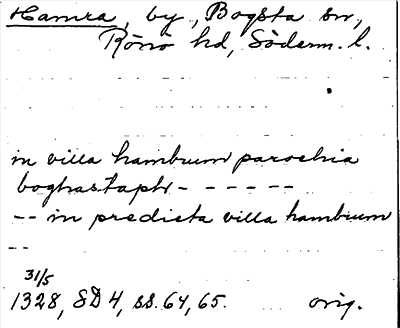 Hamra, by, Bogsta sn,
Rönö hd, Söderm. l.
in villa hambrum parochia
boghastaph - - - - - -
-- in predicta villa hambrum
--
31/5
1328, SD 4, ss. 64, 65. orig.